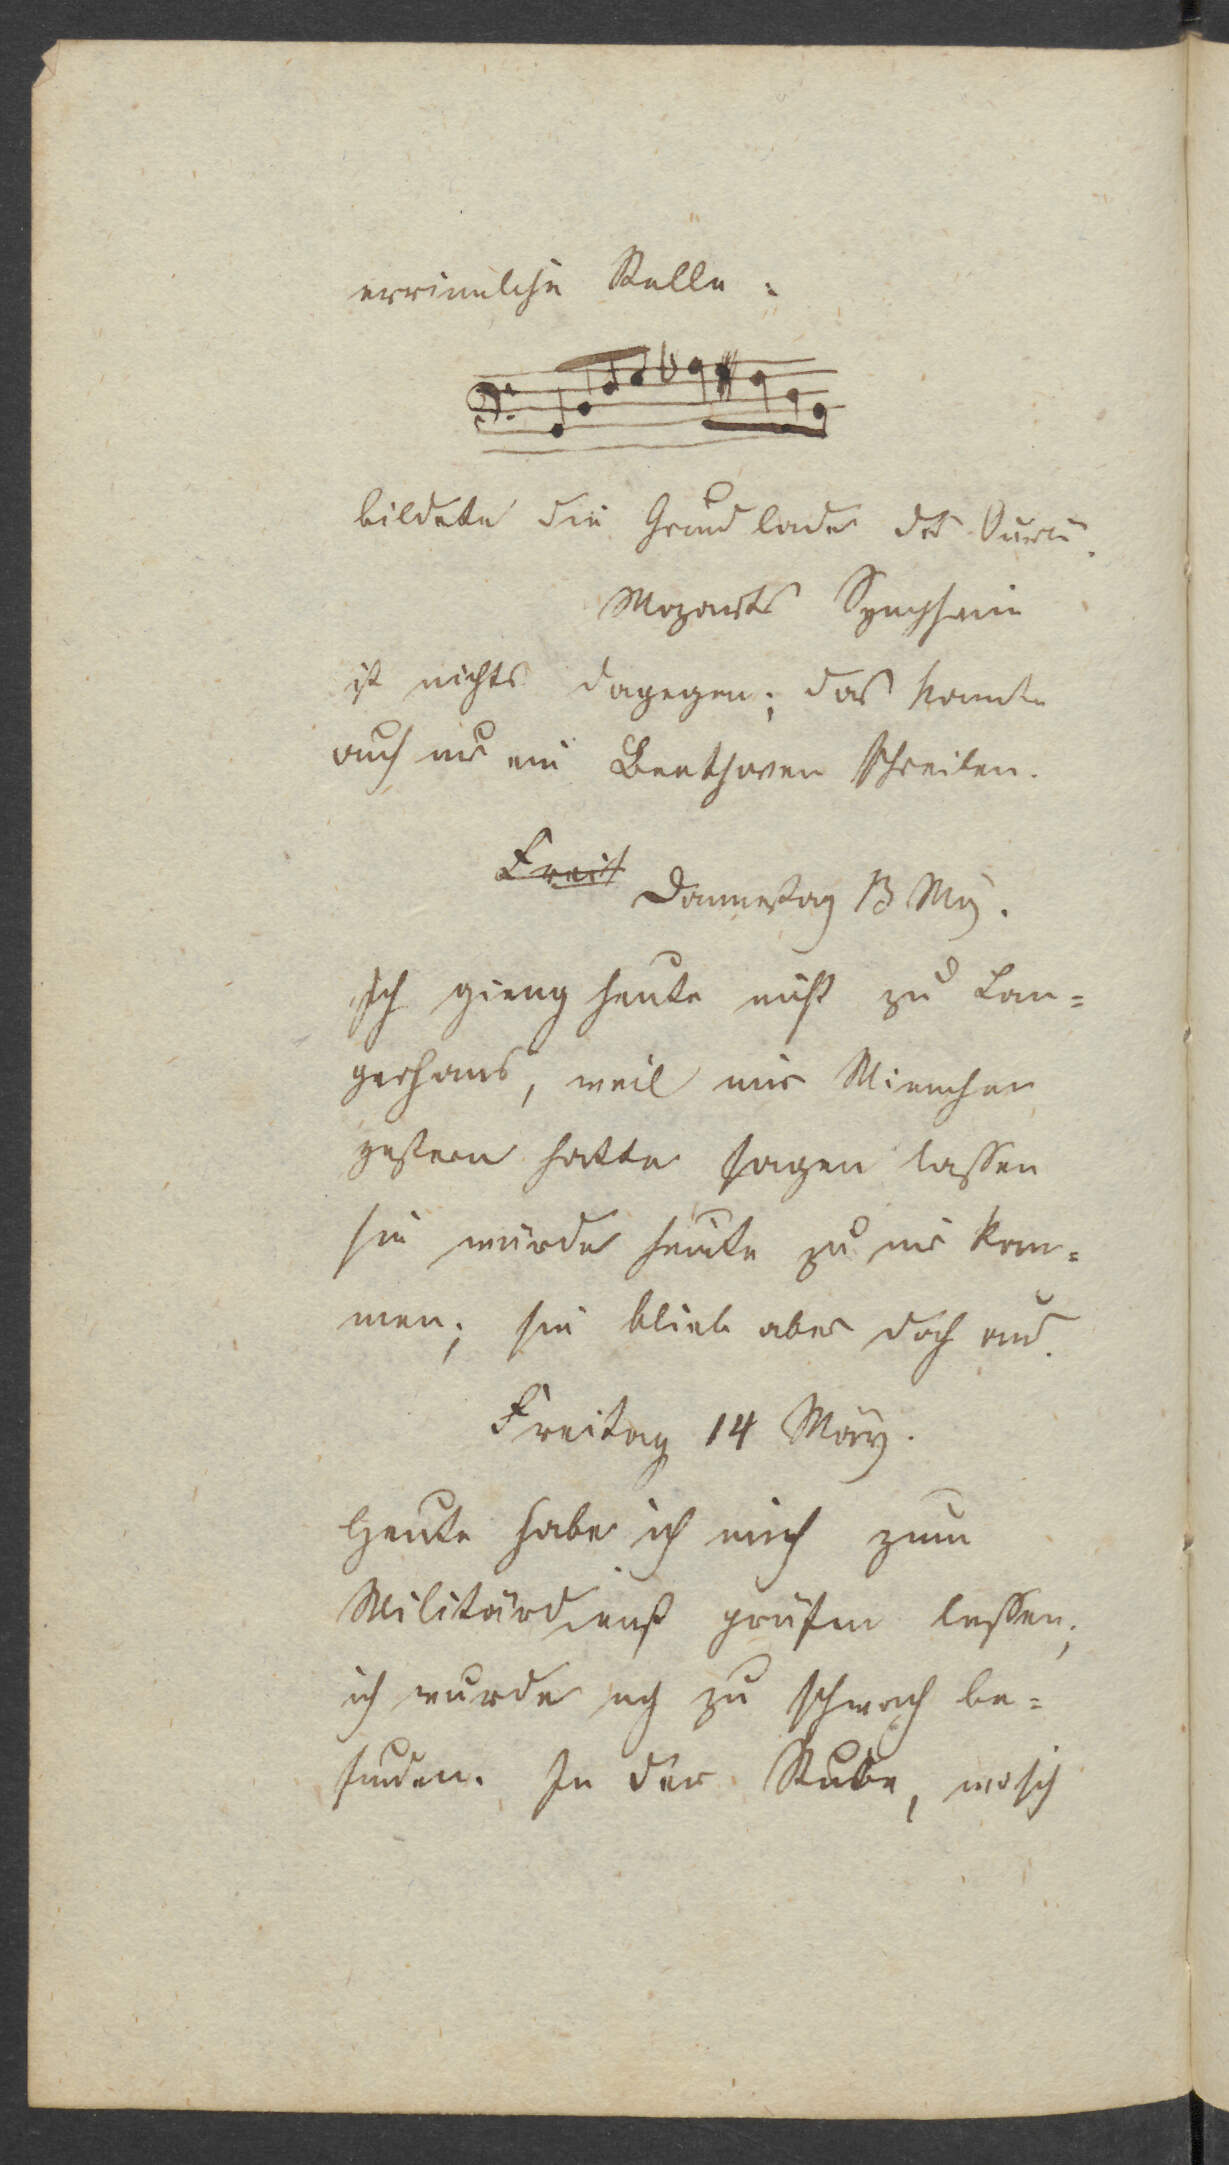 Stelle:
bildete die Grundlade der
Mozarts Symphonie
ist nichts dagegen; das konnte
auch nur ein Beethoven schreiben.
Freit Donnerstag 13 Mz.
Ich gieng heute nicht zu Lan=
gerhans, weil mir Mienchen
gestern hatte sagen lassen
sie würde heute zu mir kom=
men; sie blieb aber doch aus.
Freitag 14 März.
Heute habe ich mich zum
Militärdienst prüfen lassen;
ich wurde zu schwach be=
funden. In der Stube, wo ich